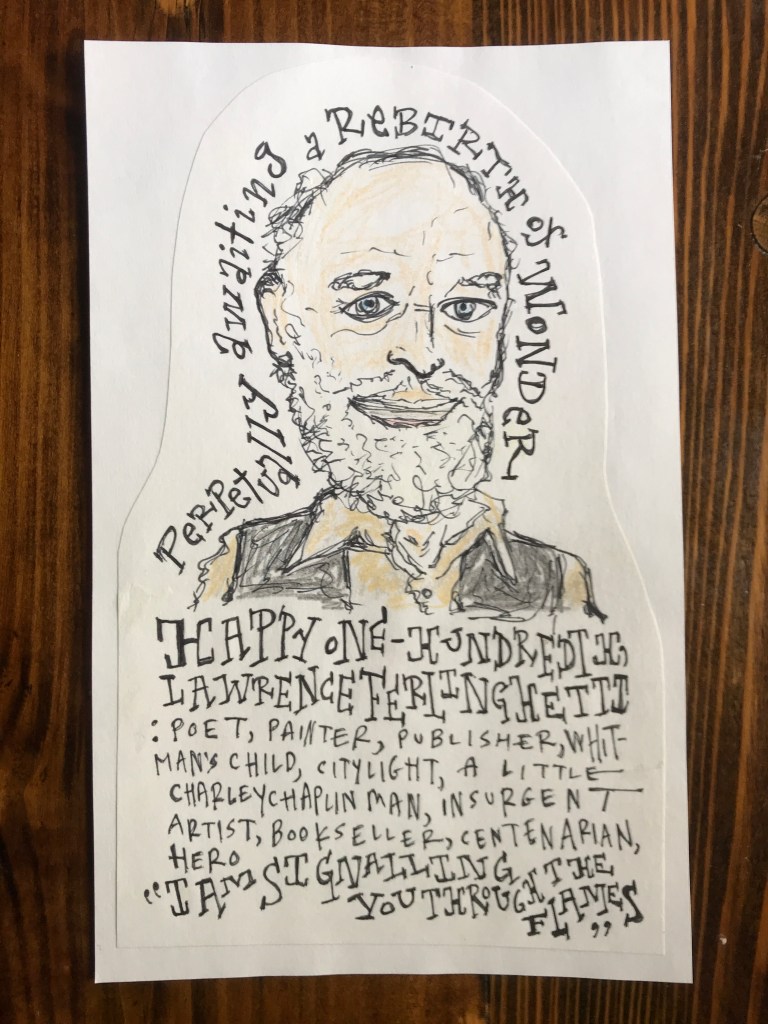 PERPETUALLY awaiting a REBIRTH of WONDER
HAPPY ONE-HUNDREDTH,
LAWRENCE FERLINGHETTI
: POET, PAINTER, PUBLISHER, WHIT-
MAN'S CHILD, CITYLIGHT, A LITTLE
CHARLEYCHAPLIN MAN, INSURGENT
ARTIST, BOOKSELLER, CENTENARIAN,
HERO
"I AM SIGNALLING
YOU THROUGH THE
FLAMES"